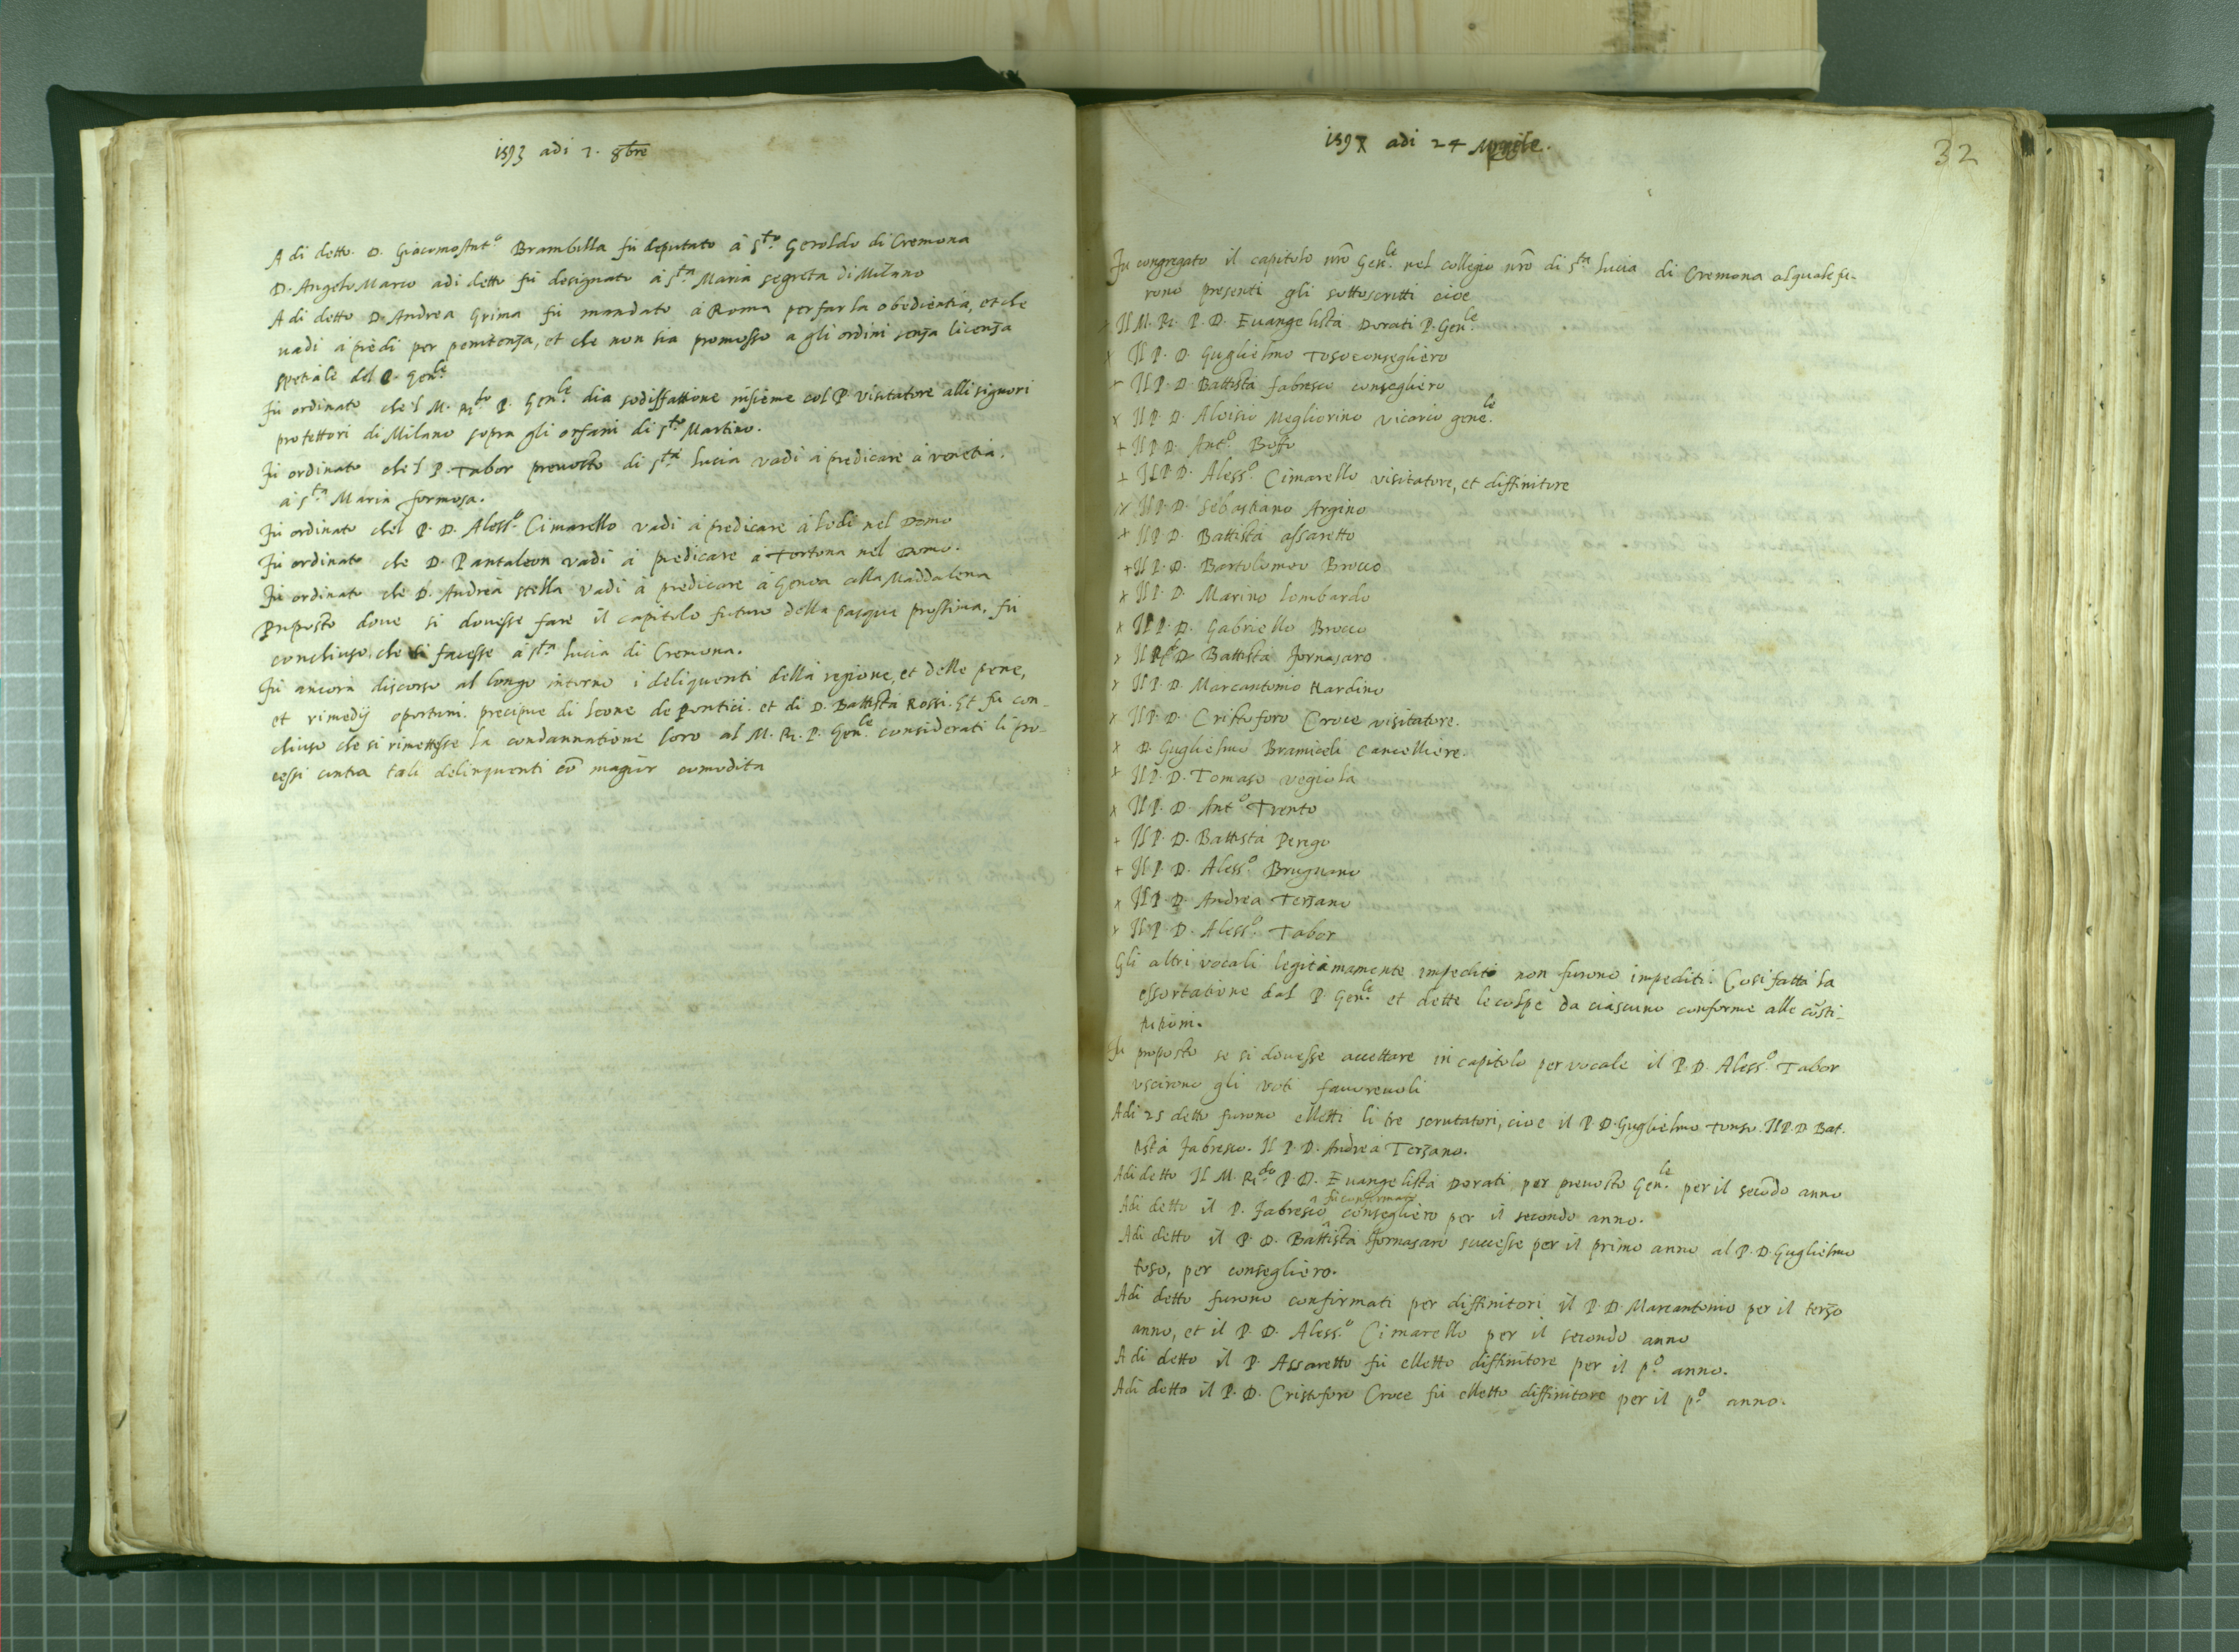 1593 adi 7. 8bre
A di detto. D. Giacomo Ant.o Brambilla fù deputato à S.to Geroldo di Cremona
D. Angelo Marco adi detto fù designato à S.ta Maria segreta di Milano
A di detto D. Andrea Grima fù mandato à Roma per far la obedientia, et che
vadi à piedi per penitenza, et che non sia promosso a gli ordini senza licenza
spetiale del P. Gen.le
Fù ordinato che'l M. R.do P. Gen.le dia sodisfattione insieme col P. visitatore alli signori
protettori di Milano sopra gli orfani di S.to Martino.
Fù ordinato che'l P. Tabor prevosto di S.ta Lucia vadi à predicare à Venetia.
à S.ta Maria formosa.
Fù ordinato che'l P. D. Aless.o Cimarello vadi à predicare à Lodi nel Domo
Fù ordinato che D. Pantaleon vadi à predicare à Tortona nel Domo.
Fù ordinato che D. Andrea Stella vadi à predicare à Genova alla Maddalena
Proposto dove si dovesse fare il capitolo futuro della pasqua prossima, fù
conchiuso, che si facesse à S.ta Lucia di Cremona.
Fù ancora discorso al longo intorno i deliquenti della regione, et delle pene,
et rimedij oportuni. precipue di Leone de Pontici. et di D. Battista Rossi. Et fù con-
chiuso che si rimettesse la condannatione loro al M. R. P. Gen.le considerati li pro-
cessi contra tali delinquenti cō magior comodita
adi 24 Aprile.
32
Fù congregato il capitolo nrō Gen.le nel collegio nrō di S.ta Lucia di Cremona al quale fu-
rono presenti gli sottoscritti cioe
x Il M. R. P. D. Evangelista Dorati P. Gen.le
x Il P. D. Guglielmo Toso consegliero
x Il P. D. Battista Fabresco consegliero
x Il P. D. Aloisio Megliorino Vicario gene.le
+ Il P. D. Ant.o Boffo
+ Il P. D. Aless.o Cimarello visitatore, et diffinitore
x Il P. D. Sebastiano Argino
+ Il P. D. Battista assaretto
+ Il P. D. Bartolomeo Brocco
x Il P. D. Marino Lombardo
x Il P. D. Gabriello Brocco
x Il P. D. Battista Fornasaro
x Il P. D. Marcantonio Nardino
x Il P. D. Cristoforo Croce visitatore.
x D. Guglielmo Bramiceli Cancelliere.
x Il P. D. Tomaso vegiola
x Il P. D. Ant.o Trento
+ Il P. D. Battista Perego
+ Il P. D. Aless.o Brugnano
x Il P. D. Andrea Terzano
x Il P. D. Aless.o Tabor
Gli altri vocali legitimamente impediti non furono impediti. Cosi fatta la
essortatione dal P. Gen.le et dette le colpe da ciascuno conforme alle cōsti-
tutioni.
Fù proposto se si dovesse accettare in capitolo per vocale il P. D. Aless.o Tabor
uscirono gli voti favorevoli
Adi 25 detto furono elletti li tre scrutatori, cioe il P. D. Guglielmo Tonso. Il P. D. Bat-
tista Fabresco. Il P. D. Andrea Terzano.
Adi detto Il M. R.do P. D. Evangelista Dorati per prevosto Gen.le per il secōdo anno
Adi detto il P. Fabresco fù confirmato consegliero per il secondo anno.
Adi detto il P. D. Battista Fornasaro successe per il primo anno al P. D. Guglielmo
toso, per consegliero.
Adi detto furono confirmati per diffinitori il P. D. Marcantonio per il terzo
anno, et il P. D. Aless.o Cimarello per il secondo anno
Adi detto il P. Assaretto fù elletto diffinitore per il p.o anno.
Adi detto il P. D. Cristoforo Croce fù elletto diffinitore per il p.o anno.